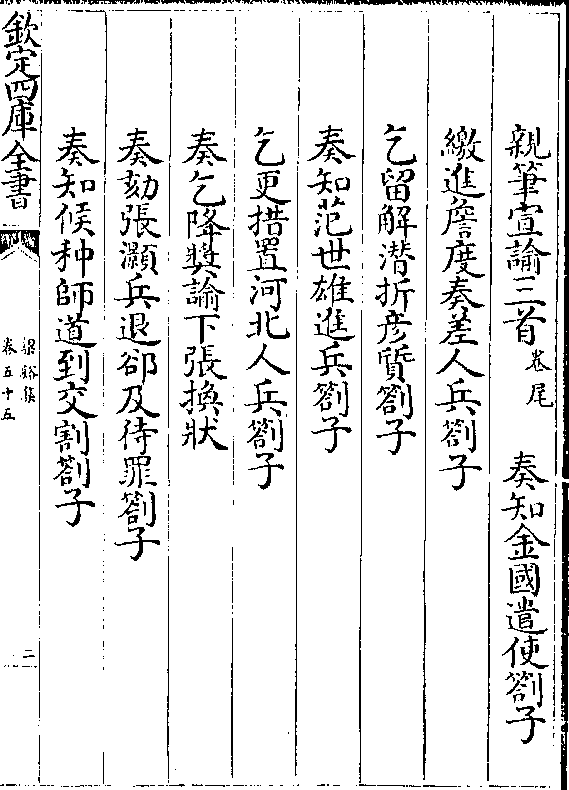 親筆宣諭三首卷尾　奏知金國遣使劄子
繳進詹度奏差人兵劄子
乞留解潛折彥質劄子
奏知范世雄進兵劄子
乞更措置河北人兵劄子
奏乞降獎諭下張換狀
奏劾張灝兵退郤及待罪劄子
奏知候种師道到交割劄子
欽定四庫全書
梁谿集
卷五十五
二